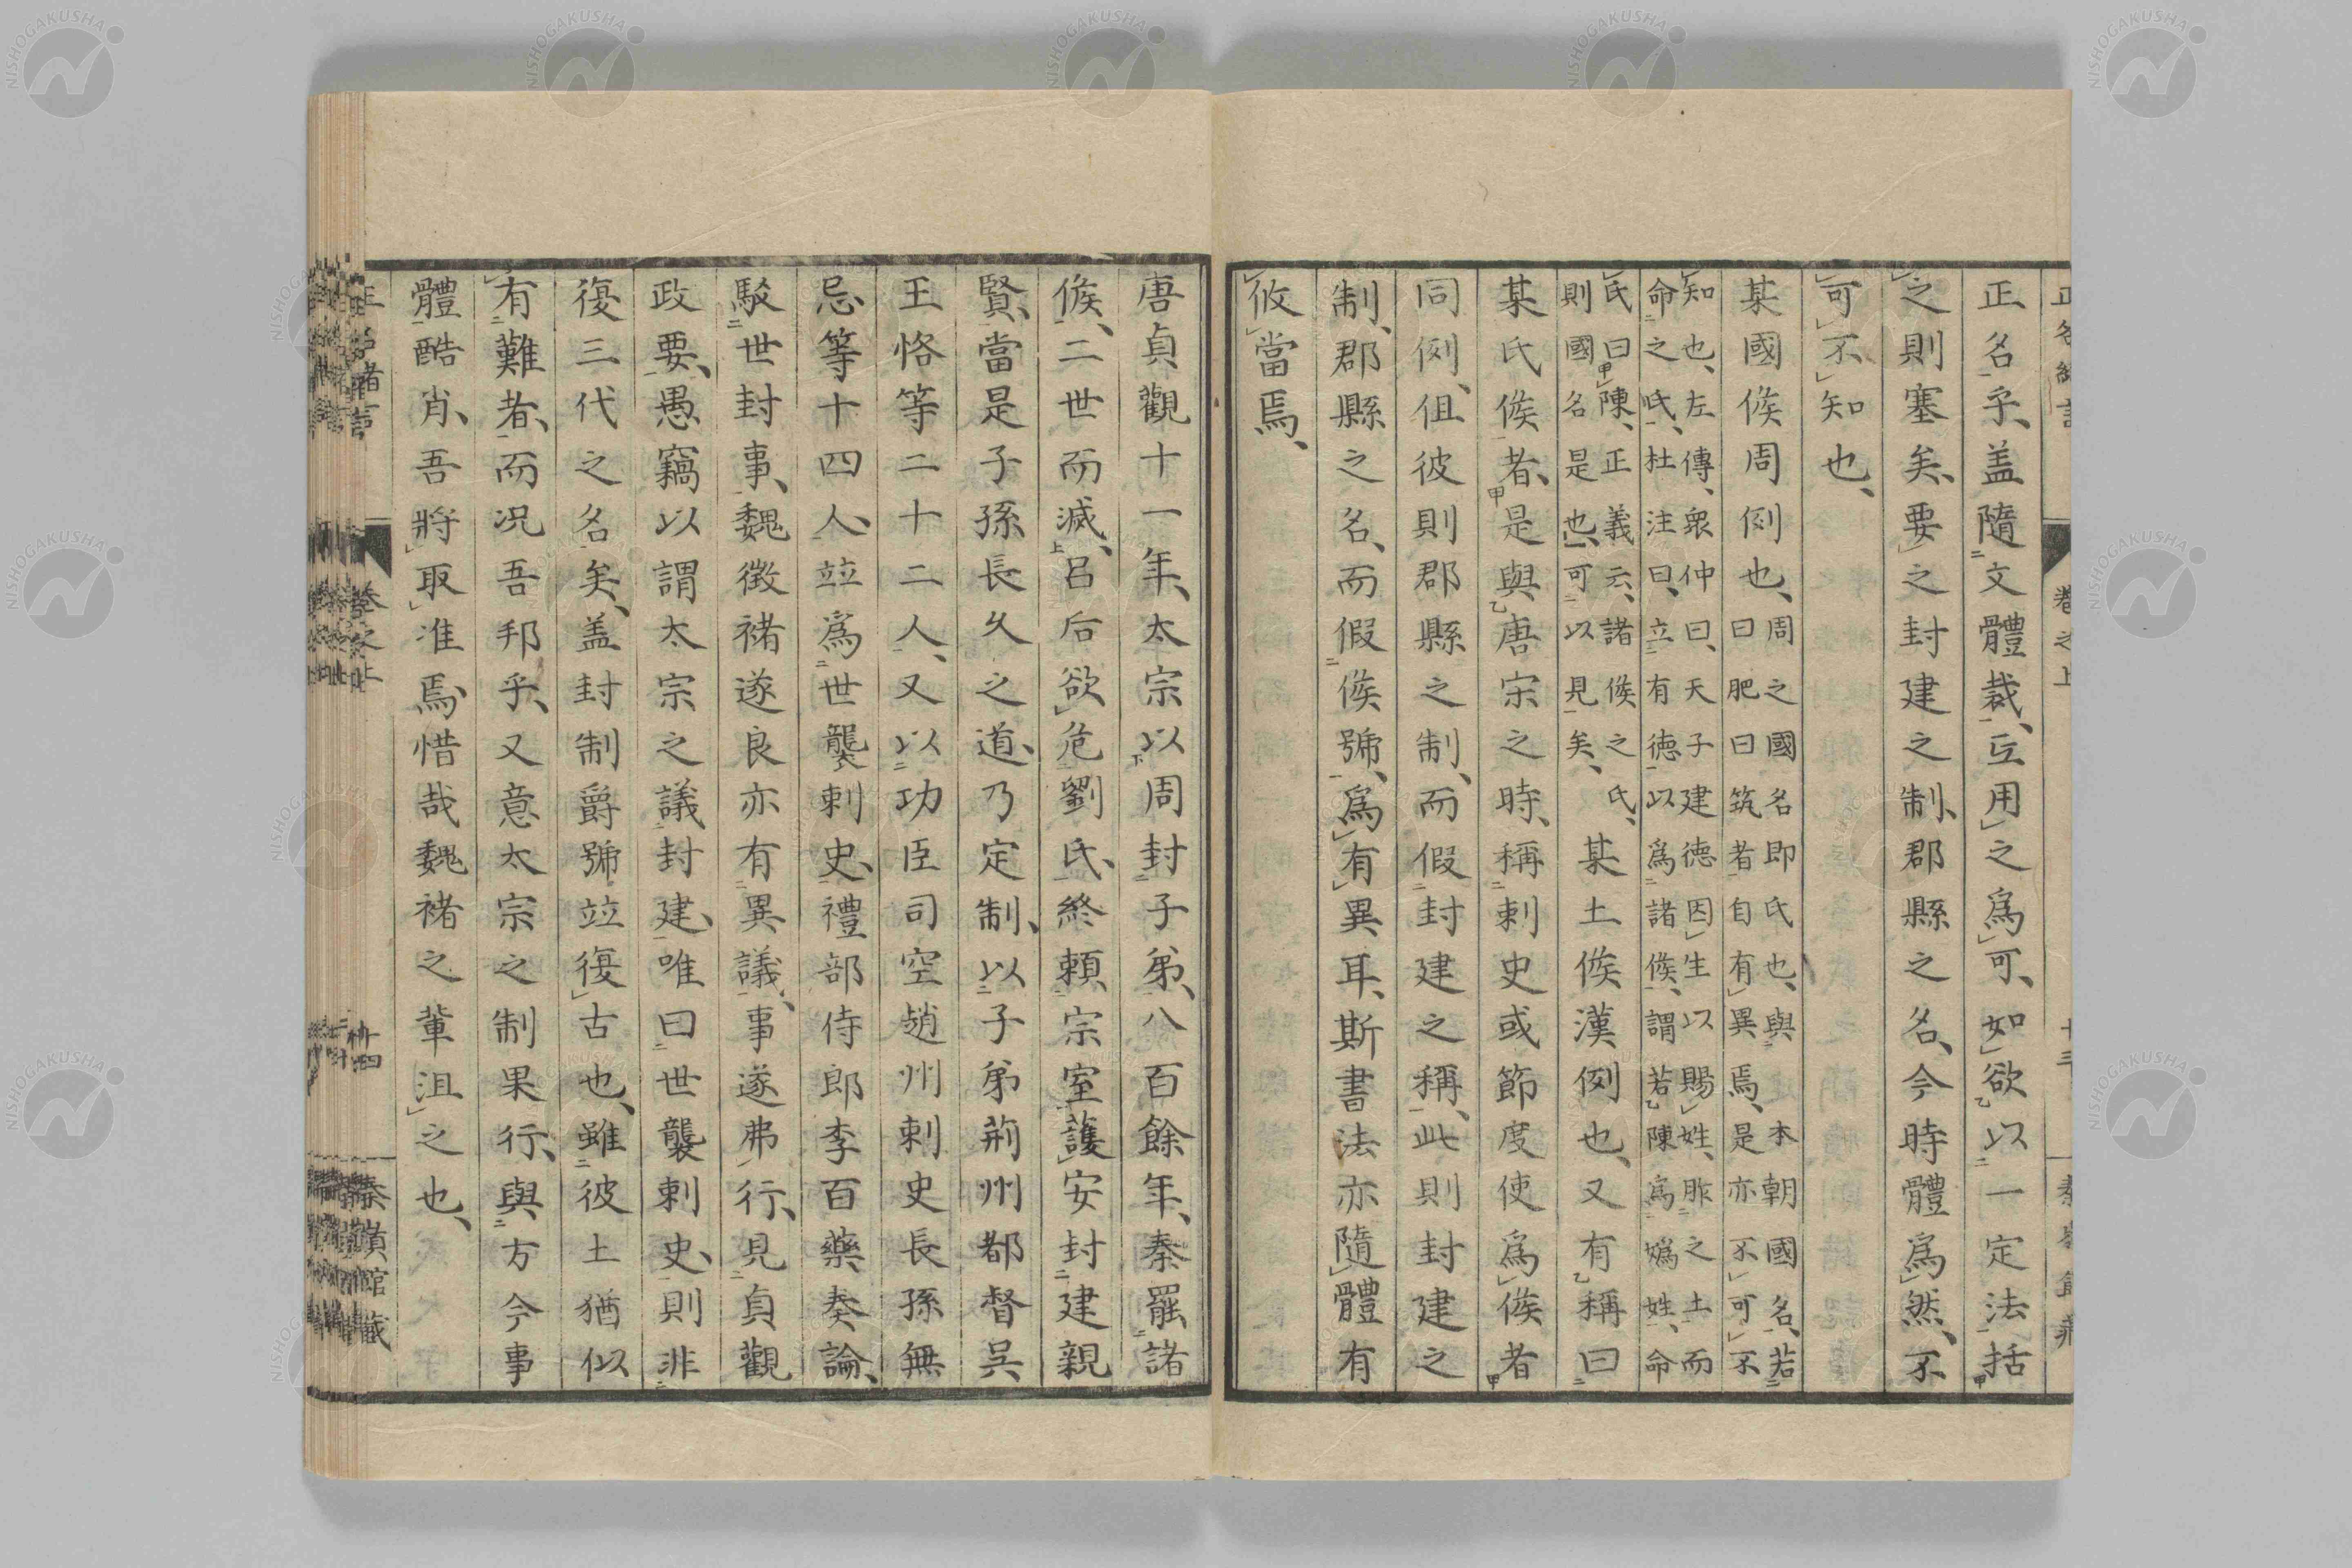 正名乎、盖隨文體裁、互用之爲可、如欲以一定法括
之則塞矣、要之封建之制、郡縣之名、今時體爲然、不
可不知也、
某國侯周例也、周之國名即氏也、與本朝國名、若
曰肥曰筑者自有異焉、是亦不可不
知也、左傳、衆仲曰、天子建德因生以賜姓、胙之土而
命之氏、杜注曰、立有德以爲諸侯、謂若陳爲嬀姓、命
氏曰陳、正義云、諸侯之氏、
則國名是也、可以見矣、
某土侯漢例也、又有稱曰
某氏侯者、是與唐宋之時、稱刺史或節度使爲侯者
同例、但彼則郡縣之制、而假封建之稱、此則封建之
制、郡縣之名、而假侯號、爲有異耳、斯書法亦隨體有
攸當焉、
唐貞觀十一年、太宗以周封子弟、八百餘年、秦罷諸
侯、二世而滅、呂后欲危劉氏、終賴宗室護安封建親
賢、當是子孫長久之道、乃定制、以子弟荊州都督吳
王恪等二十二人、又以功臣司空趙州刺史長孫無
忌等十四人、竝爲世襲刺史、禮部侍郎李百藥奏論、
駁世封事、魏徵褚遂良亦有異議、事遂弗行、見貞觀
政要、愚竊以謂太宗之議封建、唯曰世襲刺史、則非
復三代之名矣、盖封制爵號竝復古也、雖彼土猶似
有難者、而况吾邦乎、又意太宗之制果行、與方今事
體酷肖、吾將取准焉、惜哉魏褚之輩沮之也、
卷之上